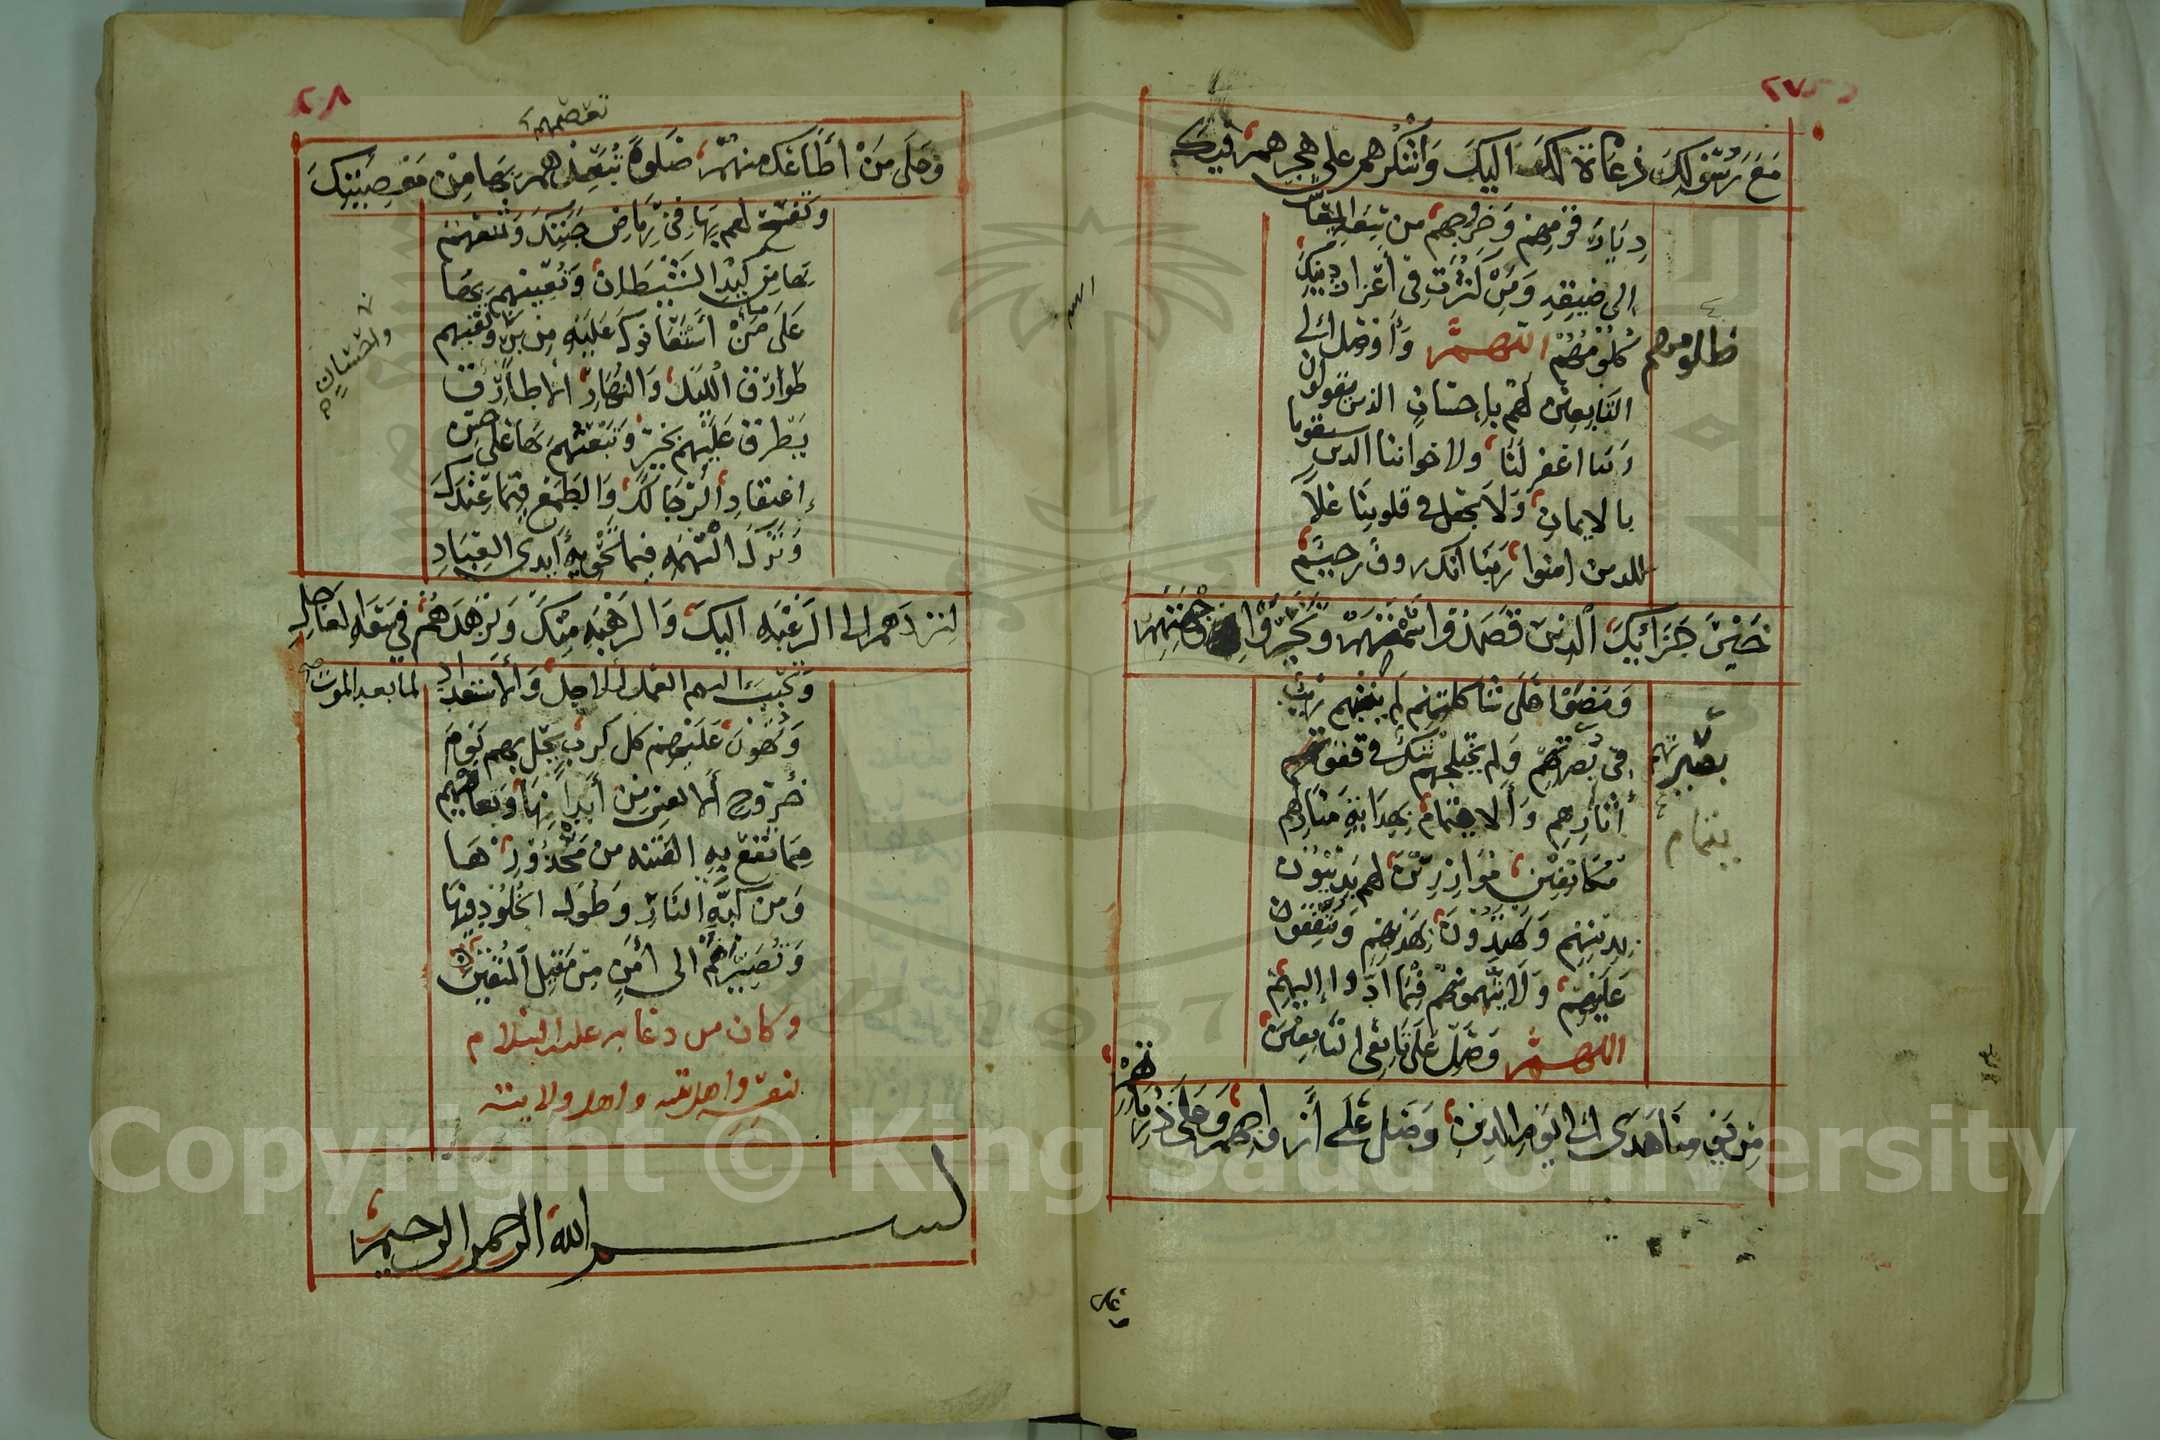 ٢٧
مَعَ رَسُولِكَ دُعَاةً لَكَ اليكَ وَاشْكُرهم على هجرهم فيك
دِيَارَ قَوْمِهِم وَخُروجِهِم من سَعَةِ المعاش
إلى ضِيقِهِ وَمَنْ كَثَّرْتَ فِي اعْزَازِ دِينِكَ
مِن مَظْلُومِهِم اللهمَّ وَأَوْصِل الى
مظلومهم
التَّابِعِينَ لَهُم بِإحسَانٍ الذين يقولون
رَبنا اغفر لَنَا ولاخواننا الذين سبقونا
بالايمانِ وَلَا تجعل في قلوبِنَا غِلاً
للذين امنوا رَبنَا انك رءوف رحيم
خَيْرَ جَزَائِكَ الَّذِينَ قَصَدُوا سَمْتَهُمْ وَتَحَرَّوْا وِجْهَتَهُمْ
وَمَضَوْا عَلَى شَاكِلَتِهِم لَم يَثْنِهِم رَيْبٌ
فِي بَصِيرَتِهِم وَلَم يَخْتَلِجْهُم شَكٌّ في قَفْوِ
بصيرتهم
آثَارِهِم وَالايتِمَامِ بِهِدَايَةِ مَنَارِهِم
مُكَانِفِينَ وَمُوَازِرِينَ لَهم يَدِينُونَ
بِدِينِهِم وَيَهْتَدُونَ بِهَدْيِهِم وَيَتَّفِقُونَ
عَلَيْهِم وَلَا يَتَّهِمُونَهُم فِيمَا أدَّوا إليهم
اللهمَّ وَصَلِّ عَلَى التَّابِعِينَ
مِن يَوْمِنَا هَذَا الى يَوْمِ الدِّينِ وَصَلِّ عَلَى أَزْوَاجِهِم وَعَلَى ذُرِّيَّاتِهِم
٢٨
تعصمهم
وَعَلَى مَنْ أَطَاعَكَ مِنْهُم صَلَوةً تُبْعِدُهُم بِهَا مِنْ مَعْصِيَتِكَ
وَتَفْسَحُ لهم بِهَا فِي رِيَاضِ جَنَّتِكَ وَتَمْنَعُهُم
بِهَا مِن كَيْدِ الشَّيْطَانِ وَتُعِينُهُم بِهَا
عَلَى مَا اسْتَعَانُوكَ عَلَيْهِ مِن بِرٍّ وَتَقِيهِم
طَوَارِقَ اللَّيْلِ وَالنَّهَارِ الا طارِقًا
يَطْرُقُ عَلَيْهِم بِخَيْرٍ وَتَبْعَثُهُم بِهَا عَلَى حُسْنِ
إعْتِقَادِ الرَّجَا لَكَ وَالطَّمَعِ فِيمَا عِنْدَكَ
وَتَرْكِ التُّهَمَةِ فِيمَا تَحْوِيهِ أَيدى العِبَادِ
لِتَرُدَّهُم إلى الرَّغْبَةِ اليكَ وَالرَّهْبَةِ مِنْكَ وَتُزَهِّدَهُمْ فِي سَعَةِ العَاجِلِ
وَتُحَبِّبَ اليهم العمل للآجل وَالاستعداد لما بعد الموت
وَتُهَوِّنَ عَلَيْهِم كل كربٍ يَحُلُّ بهم يَوْمَ
خُرُوجِ الانفس مِنْ أَبْدَانِهَا وَتُعَافِيهم
مِمَّا تَقَعُ بِهِ الفتنة من مَحْذُورَاتِهَا
وَمِن كَبَّةِ النَّارِ وَطُولِ الخُلُودِ فِيهَا
وَتُصَيِّرَهُم الى أَمْنٍ مِنْ مَقِيلِ المُتَّقِينَ
وكان من دعائه عليه السلام
لنفسه واهل بيته واهل ولايته
بسم الله الرحمن الرحيم